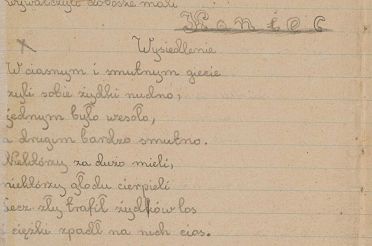 wywalczyli dobosze mali
Koniec
Wysiedlenie
W ciasnym i smutnym giecie
żyli sobie żydki nudno,
jednym było wesoło,
a drugim bardzo smutno.
Niektórzy za dużo mieli,
niektórzy głodu cierpieli
Lecz zły trafił żydków los
ciężki spadł na nich cios.